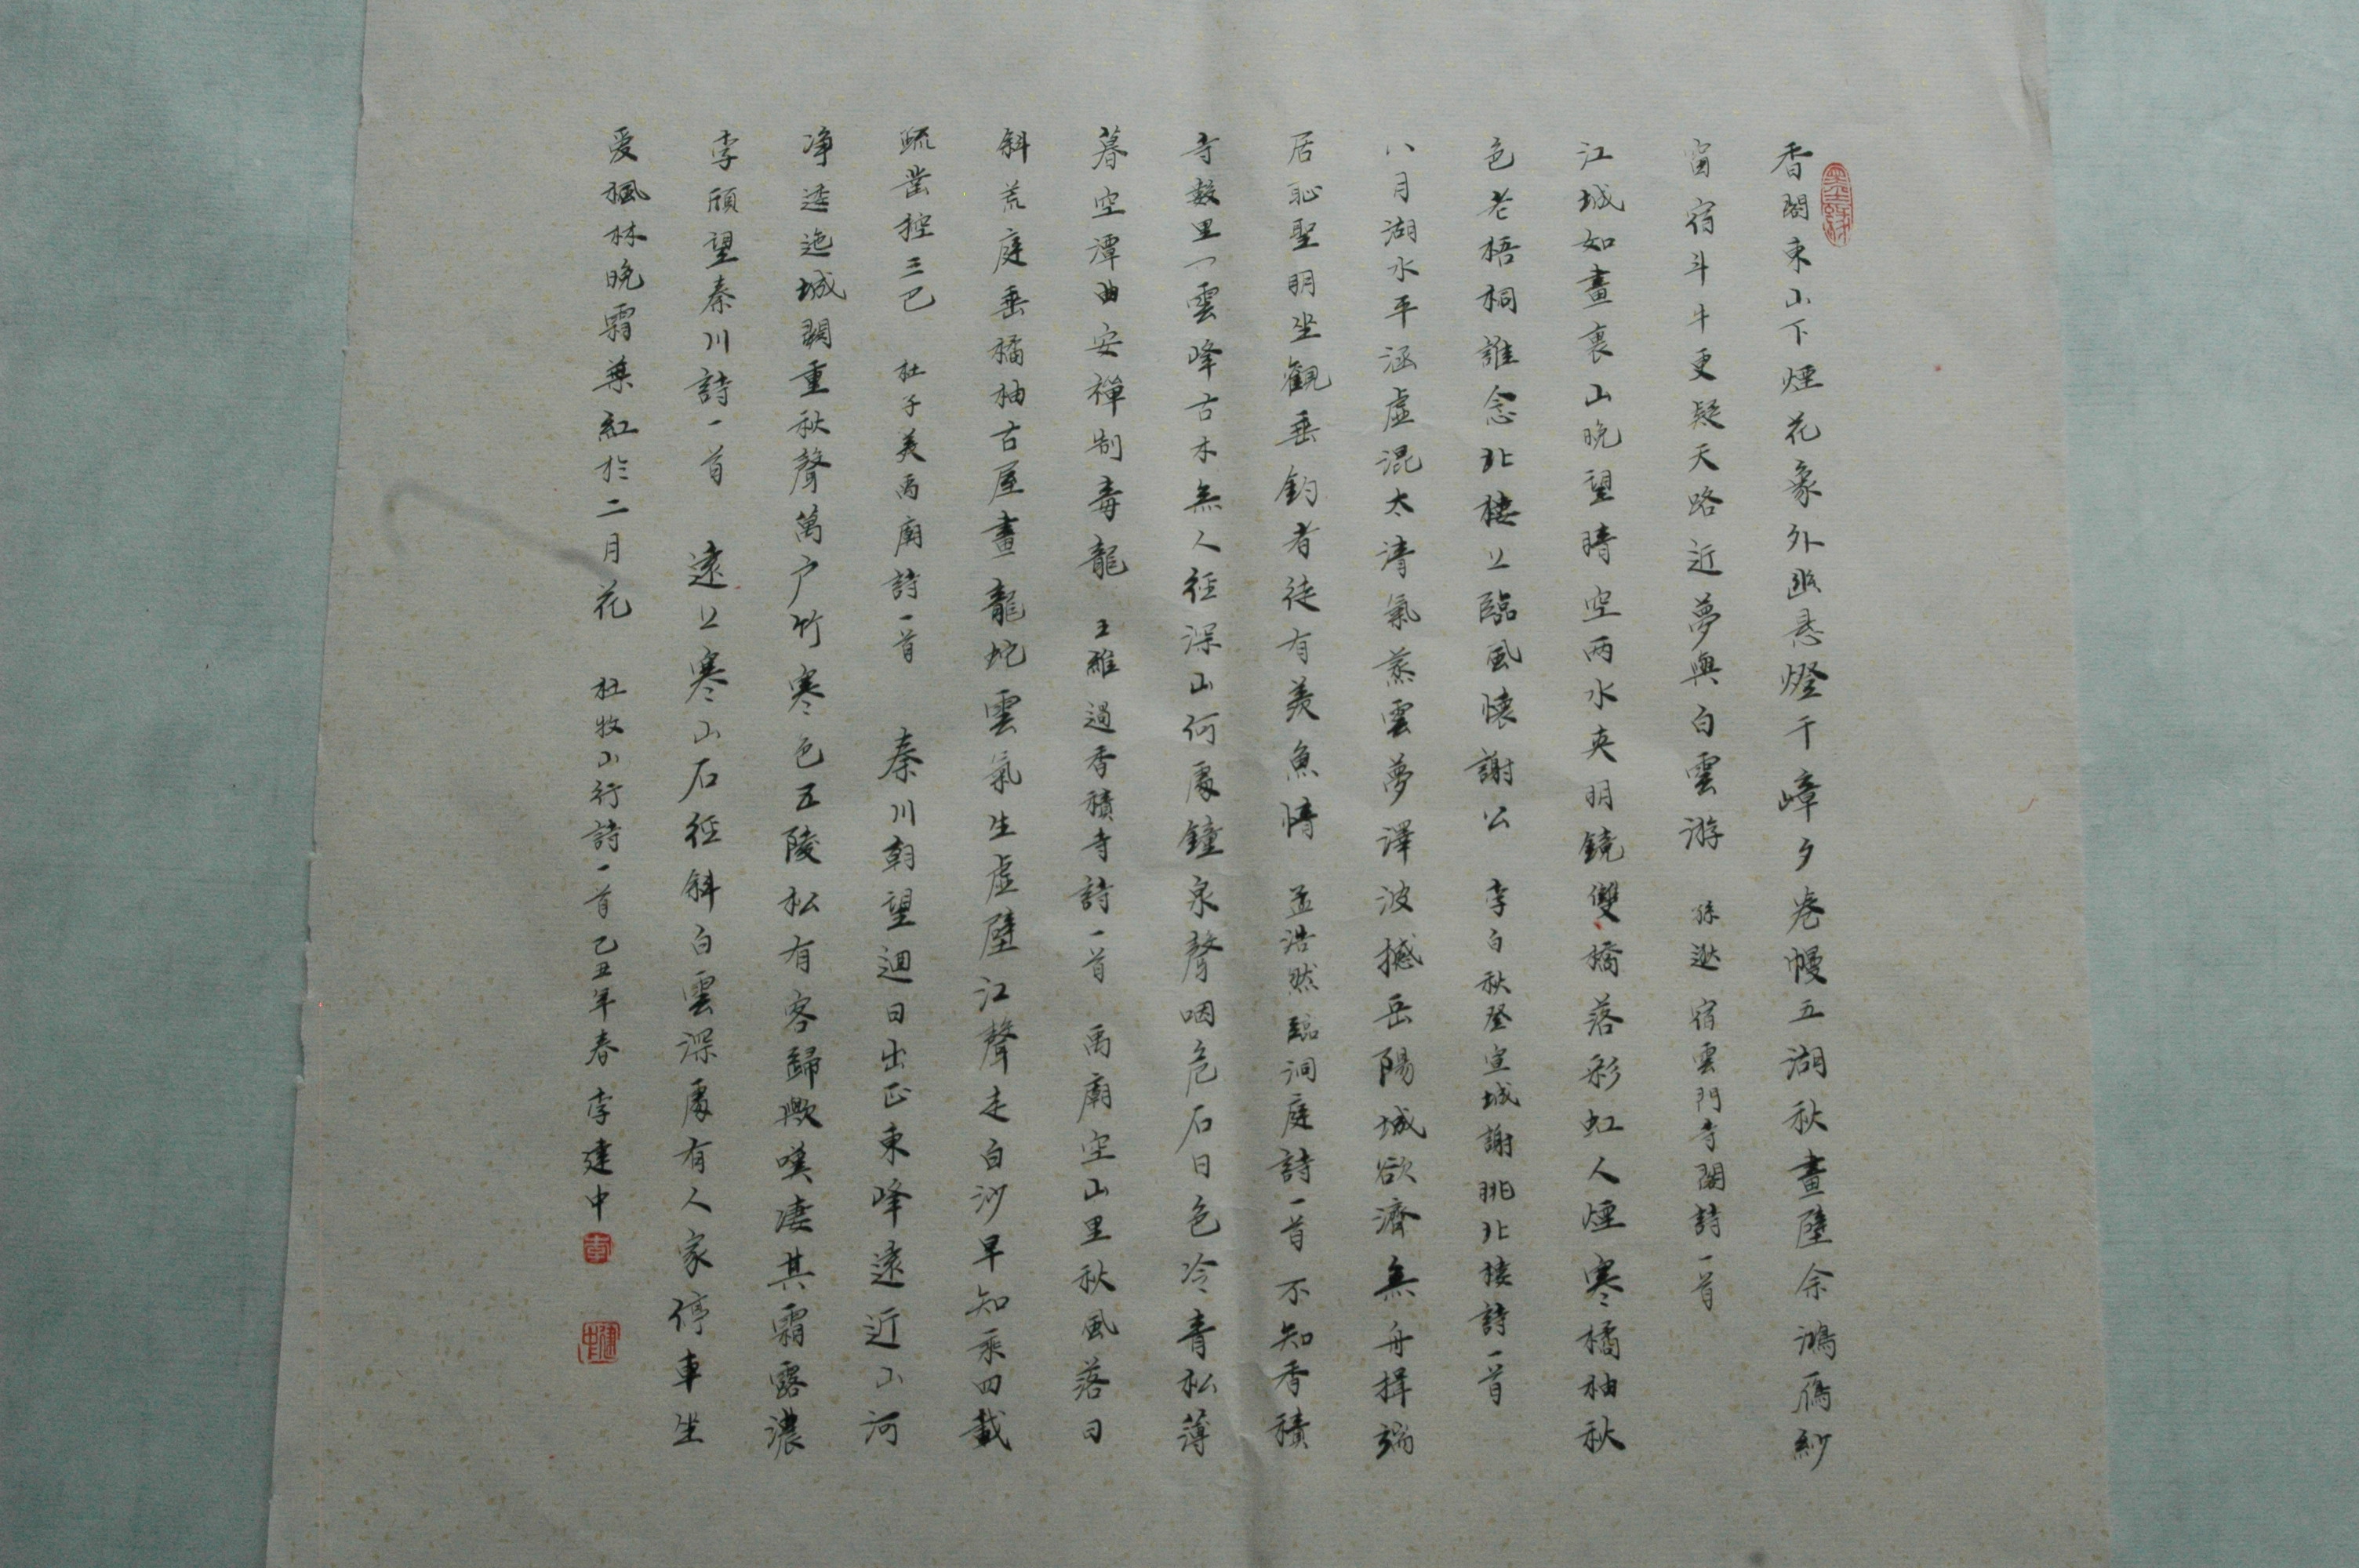 香閣東山下煙花象外幽悬燈千嶂夕卷幔五湖秋畫壁余鴻雁紗
窗宿斗牛更疑天路近夢與白雲游 孫逖 宿雲門寺閣詩一首
江城如畫裏山晚望晴空兩水夾明鏡雙橋落彩虹人煙寒橘柚秋
色老梧桐誰念北樓上臨風懷謝公 李白秋登宣城謝朓北樓詩一首
八月湖水平涵虛混太清氣蒸雲夢澤波撼岳陽城欲濟無舟揖端
居恥聖明坐觀垂釣者徒有羨魚情 孟浩然臨洞庭詩一首 不知香積
寺数里一雲峰古木無人徑深山何處鐘泉聲咽危石日色冷青松薄
暮空潭曲安禪制毒龍 王維過香積寺詩一首 禹廟空山里秋風落日
斜荒庭垂橘柚古屋畫龍蛇雲氣生虛壁江聲走白沙早知乘四載
疏凿控三巴 杜子美禹廟詩一首 秦川朝望迥日出正東峰遠近山河
净逶迤城闕重秋聲萬户竹寒色五陵松有客歸歟嘆凄其霜露濃
李頎望秦川詩一首 遠上寒山石徑斜白雲深處有人家停車坐
爱楓林晚霜葉紅於二月花 杜牧山行詩一首 乙丑年春 李建中
李
建中